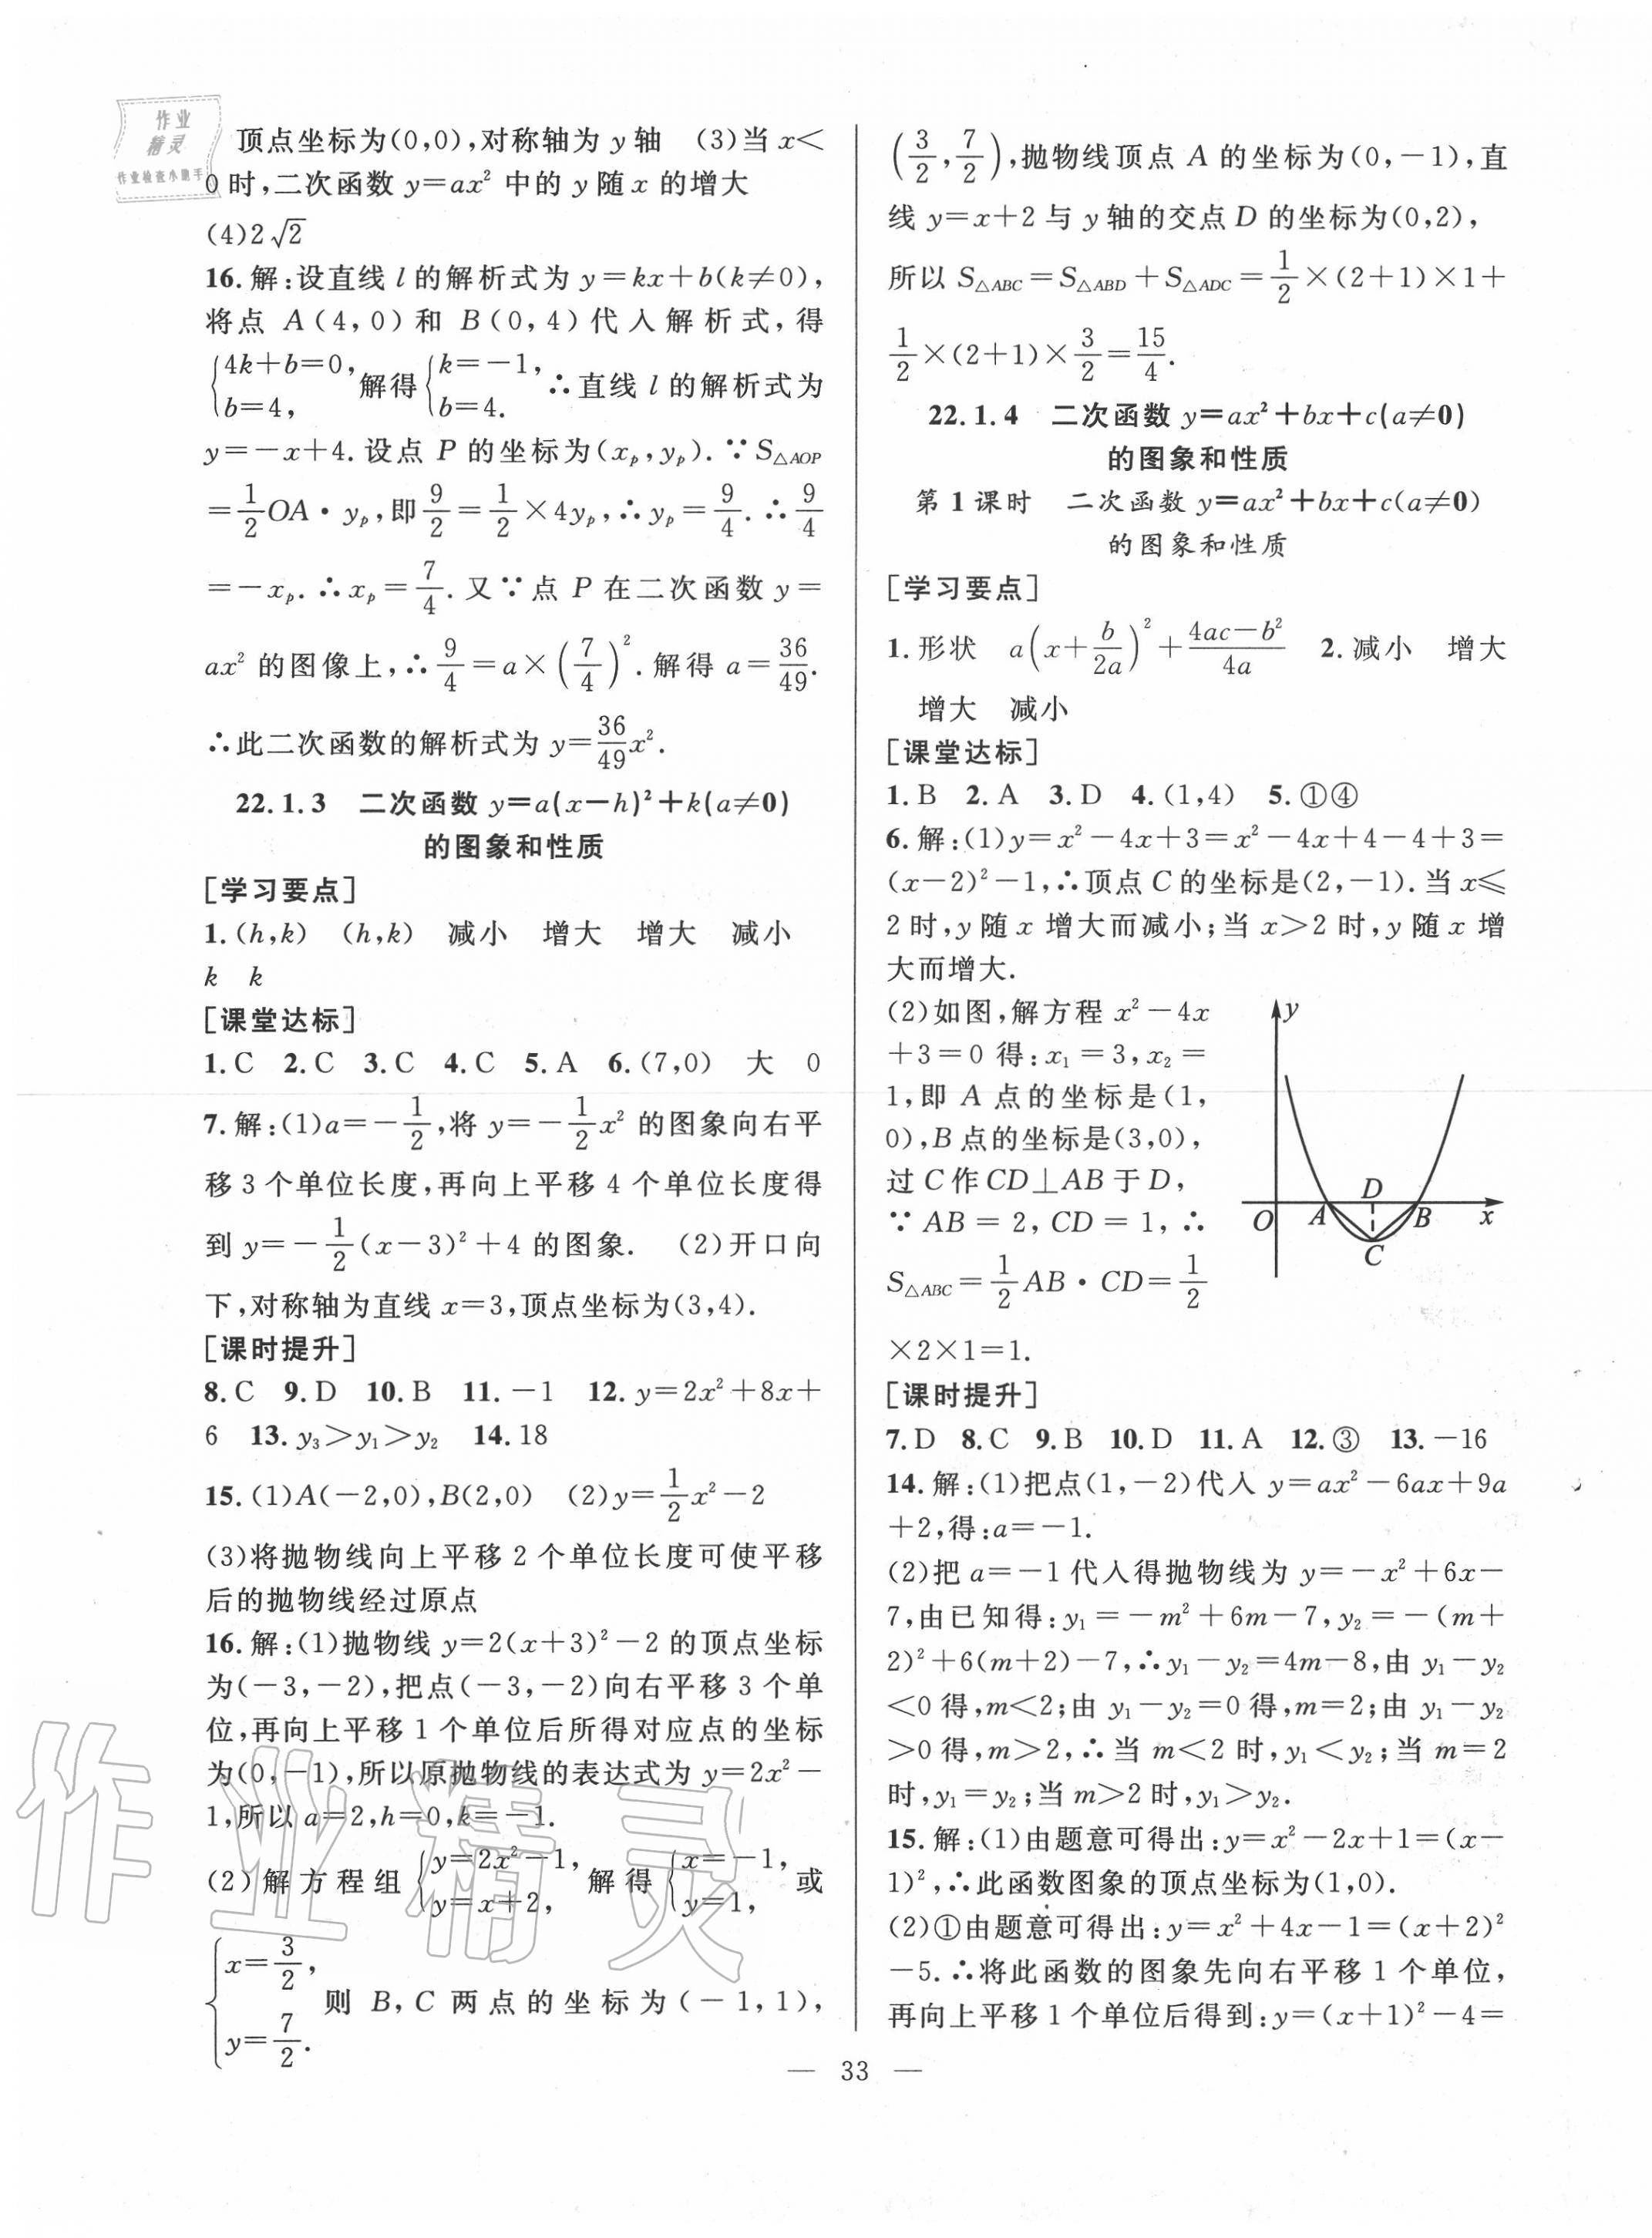 作业
精灵
作业检查小助手
顶点坐标为(0,0),对称轴为 y 轴 (3)当 x<
0 时,二次函数 y=ax² 中的 y 随 x 的增大
(4)2√2
16.解:设直线 l 的解析式为 y=kx+b(k≠0),
将点 A(4,0)和 B(0,4)代入解析式,得
{4k+b=0, b=4, 解得{k=-1, b=4. ∴直线 l 的解析式为
y=-x+4.设点 P 的坐标为(xₚ,yₚ).∵S△AOP
=1/2 OA·yₚ,即 9/2=1/2×4yₚ,∴yₚ=9/4.∴9/4
=-xₚ.∴xₚ=7/4.又∵点 P 在二次函数 y=
ax² 的图像上,∴9/4=a×(7/4)².解得 a=36/49.
∴此二次函数的解析式为 y=36/49 x².
22.1.3 二次函数 y=a(x-h)²+k(a≠0)
的图象和性质
[学习要点]
1.(h,k) (h,k) 减小 增大 增大 减小
k k
[课堂达标]
1.C 2.C 3.C 4.C 5.A 6.(7,0) 大 0
7.解:(1)a=-1/2,将 y=-1/2 x² 的图象向右平
移 3 个单位长度,再向上平移 4 个单位长度得
到 y=-1/2(x-3)²+4 的图象. (2)开口向
下,对称轴为直线 x=3,顶点坐标为(3,4).
[课时提升]
8.C 9.D 10.B 11.-1 12.y=2x²+8x+
6 13.y₃>y₁>y₂ 14.18
15.(1)A(-2,0),B(2,0) (2)y=1/2 x²-2
(3)将抛物线向上平移 2 个单位长度可使平移
后的抛物线经过原点
16.解:(1)抛物线 y=2(x+3)²-2 的顶点坐标
为(-3,-2),把点(-3,-2)向右平移 3 个单
位,再向上平移 1 个单位后所得对应点的坐标
为(0,-1),所以原抛物线的表达式为 y=2x²-
1,所以 a=2,h=0,k=-1.
(2)解方程组{y=2x²-1, y=x+2, 解得{x=-1, y=1, 或
{x=3/2, y=7/2. 则 B,C 两点的坐标为(-1,1),
(3/2,7/2),抛物线顶点 A 的坐标为(0,-1),直
线 y=x+2 与 y 轴的交点 D 的坐标为(0,2),
所以 S△ABC=S△ABD+S△ADC=1/2×(2+1)×1+
1/2×(2+1)×3/2=15/4.
22.1.4 二次函数 y=ax²+bx+c(a≠0)
的图象和性质
第 1 课时 二次函数 y=ax²+bx+c(a≠0)
的图象和性质
[学习要点]
1.形状 a(x+b/2a)²+(4ac-b²)/4a 2.减小 增大
增大 减小
[课堂达标]
1.B 2.A 3.D 4.(1,4) 5.①④
6.解:(1)y=x²-4x+3=x²-4x+4-4+3=
(x-2)²-1,∴顶点 C 的坐标是(2,-1).当 x≤
2 时,y 随 x 增大而减小;当 x>2 时,y 随 x 增
大而增大.
(2)如图,解方程 x²-4x
+3=0 得:x₁=3,x₂=
1,即 A 点的坐标是(1,
0),B 点的坐标是(3,0),
过 C 作 CD⊥AB 于 D,
∵AB=2,CD=1,∴
S△ABC=1/2 AB·CD=1/2
×2×1=1.
y
D
O A B x
C
[课时提升]
7.D 8.C 9.B 10.D 11.A 12.③ 13.-16
14.解:(1)把点(1,-2)代入 y=ax²-6ax+9a
+2,得:a=-1.
(2)把 a=-1 代入得抛物线为 y=-x²+6x-
7,由已知得:y₁=-m²+6m-7,y₂=-(m+
2)²+6(m+2)-7,∴y₁-y₂=4m-8,由 y₁-y₂
<0 得,m<2;由 y₁-y₂=0 得,m=2;由 y₁-y₂
>0 得,m>2,∴当 m<2 时,y₁<y₂;当 m=2
时,y₁=y₂;当 m>2 时,y₁>y₂.
15.解:(1)由题意可得出:y=x²-2x+1=(x-
1)²,∴此函数图象的顶点坐标为(1,0).
(2)①由题意可得出:y=x²+4x-1=(x+2)²
-5.∴将此函数的图象先向右平移 1 个单位,
再向上平移 1 个单位后得到:y=(x+1)²-4=
— 33 —
作业精灵